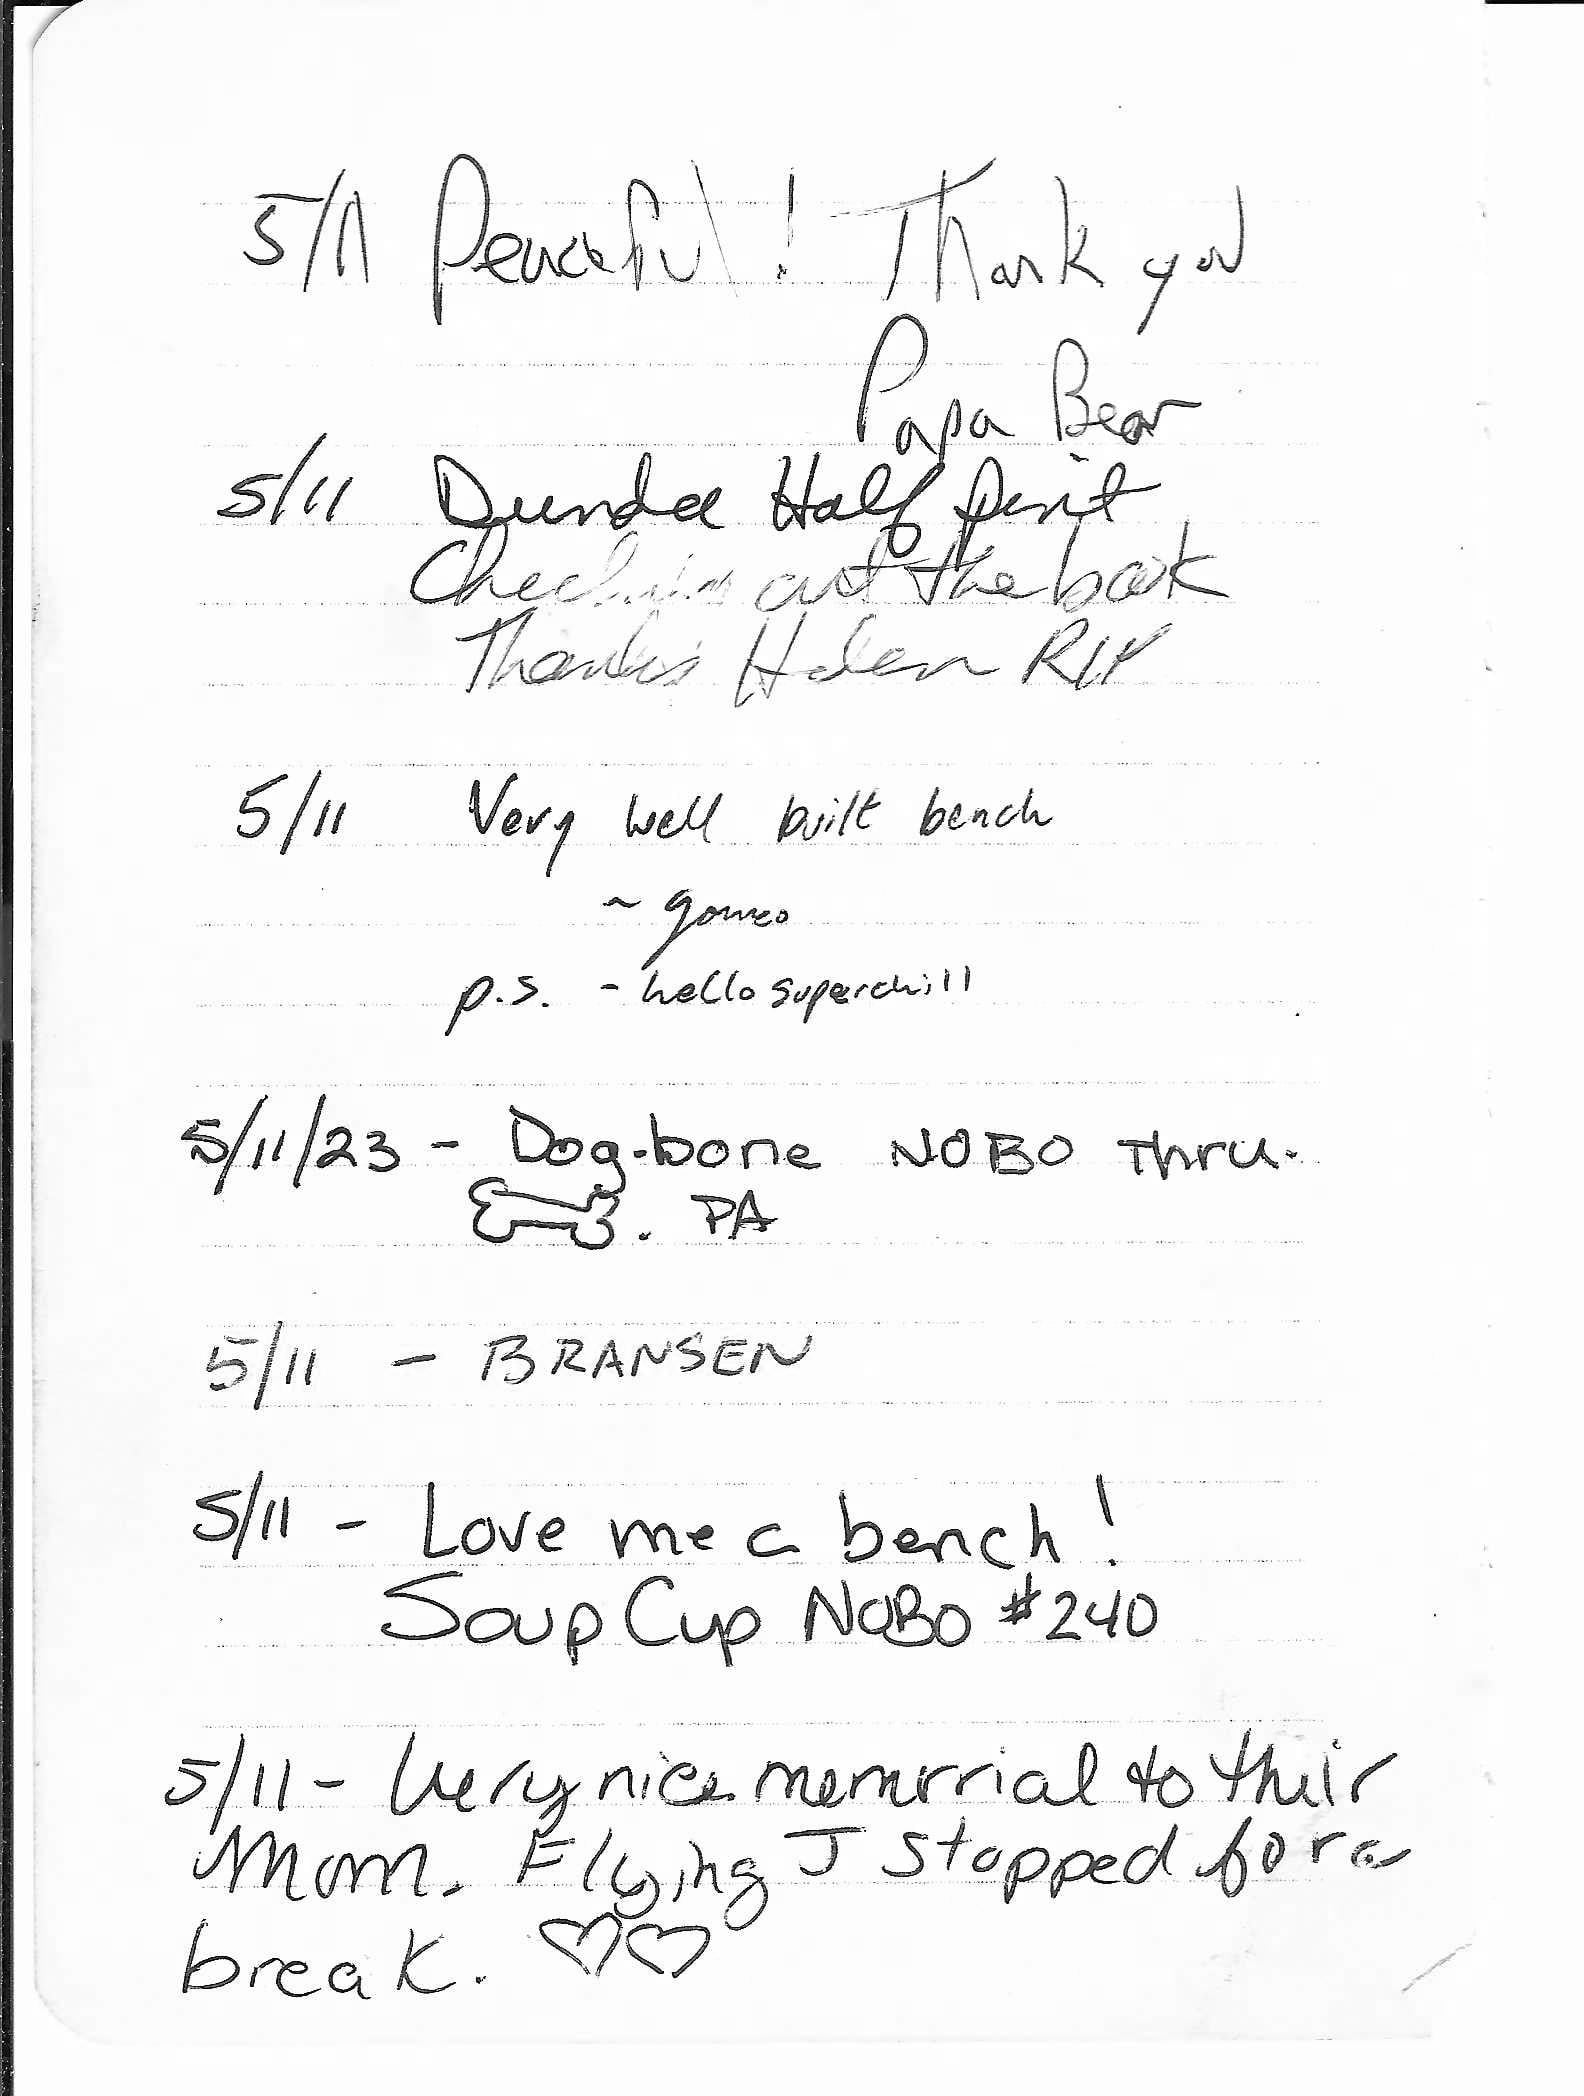 5/11 Peaceful! Thank you
Papa Bear
5/11 Dundee Half pint
Checking out the book
Thanks Helen RIP
5/11 Very well built bench
~ gomeo
p.s. - hello superchill
5/11/23 - Dog-bone NOBO Thru.
. PA
5/11 - BRANSEN
5/11 - Love me a bench!
Soup Cup NOBO #240
5/11 - Very nice memorrial to their
Mom. Flying J stopped for a
break.